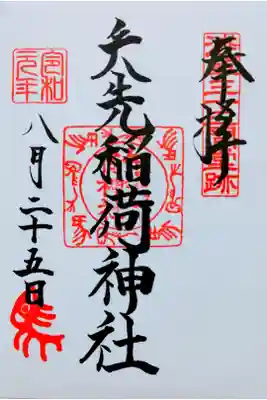 奉拝
矢先稲荷神社
令和
元年
八月二十五日